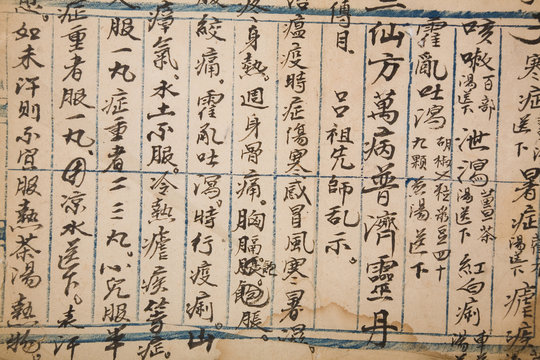 寒症送下 暑症 湯送下 瘧疾
咳嗽 百部湯送下 泄瀉 薑茶湯送下 紅白痢
霍亂吐瀉 胡椒 粒菉豆四十九顆煎湯送下
三仙方萬病普濟靈丹
傳目 呂祖先師乩示。
治瘟疫時症傷寒感冒風寒暑濕。
身熱。週身骨痛。胸膈飽脹。
絞痛。霍亂吐瀉。時行疫痢。山
瘴氣。水土不服。冷熱瘧疾等症。
大服一丸症重者二三丸。小兒服半
症重者服一丸。用凉水送下。表汗
如未汗則不宜服熱茶湯熱物。